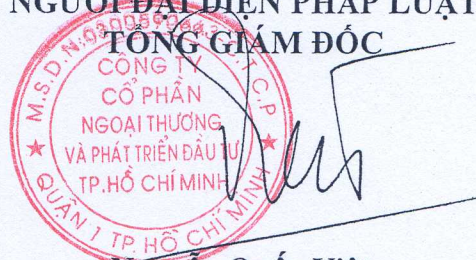 NGƯỜI ĐẠI DIỆN PHÁP LUẬT
TỔNG GIÁM ĐỐC
CÔNG TY
CỔ PHẦN
NGOẠI THƯƠNG
VÀ PHÁT TRIỂN ĐẦU TƯ
TP.HỒ CHÍ MINH
QUẬN 1 TP. HỒ CHÍ MINH